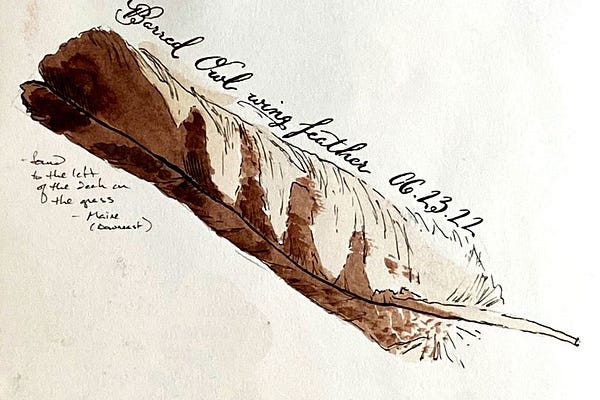 Barred Owl wing feather 06.23.22
- found
to the left
of the deck on
the grass
- Maine
(Downeast)